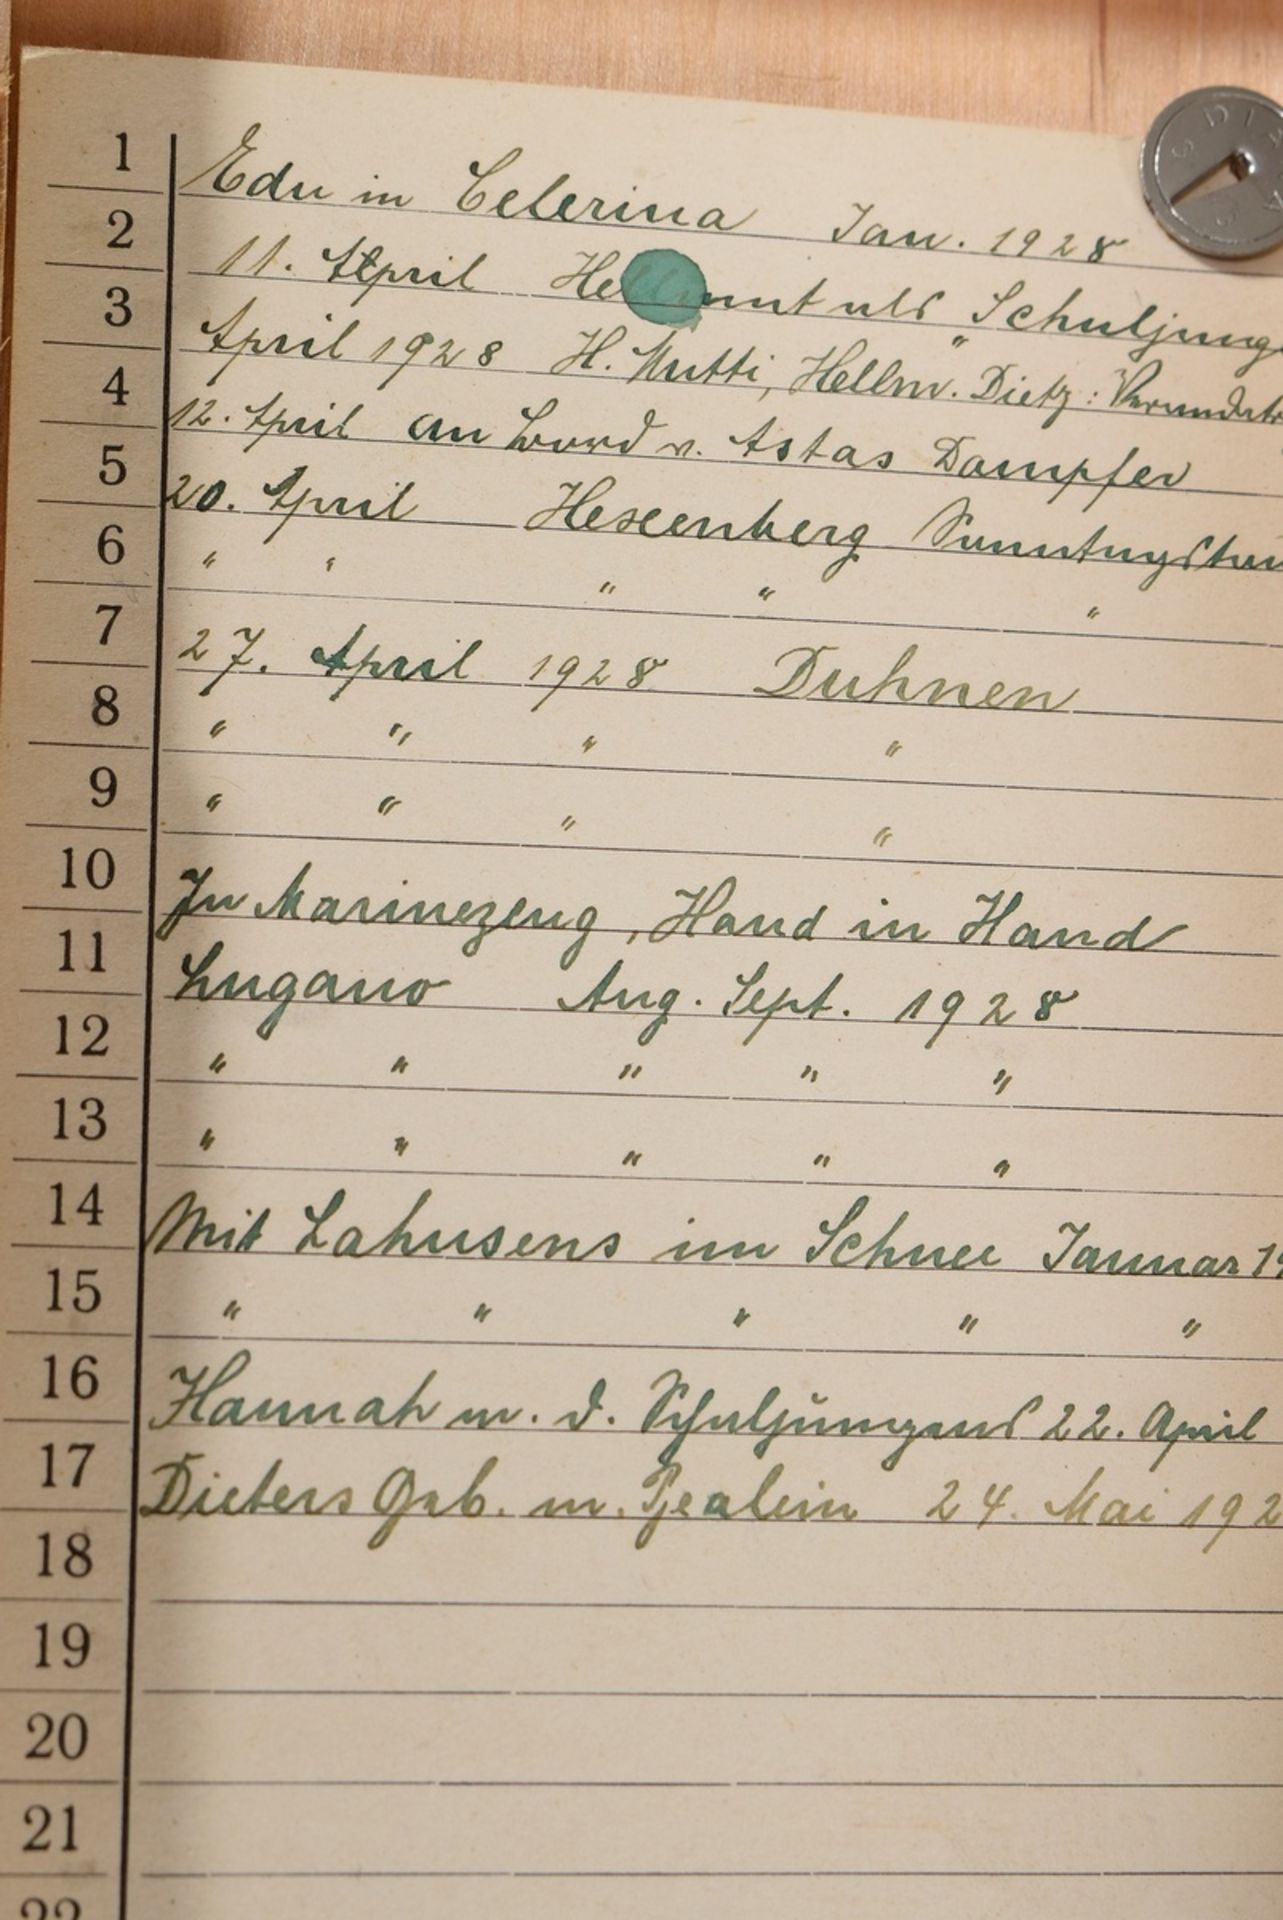 1 Edu in Celerina Jan. 1928
2 11. April Hellmut als Schuljung
3 April 1928 H. Mutti, Hellm. Dietz:
4 12. April an Bord v. Astas Dampfer
5 20. April Hexenberg
6 " " " " "
7 27. April 1928 Duhnen
8 " " " "
9 " " " "
10 In Marinezeug, Hand in Hand
11 Lugano Aug. Sept. 1928
12 " " " " "
13 " " " " "
14 Mit Lahusens im Schnee Januar 19
15 " " " " "
16 Hannah m. d. Schuljungens 22. April
17 Dieters Geb. m. 24. Mai 192
18
19
20
21
22